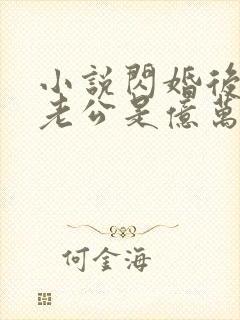 小說閃婚後
老公是億萬
何金海